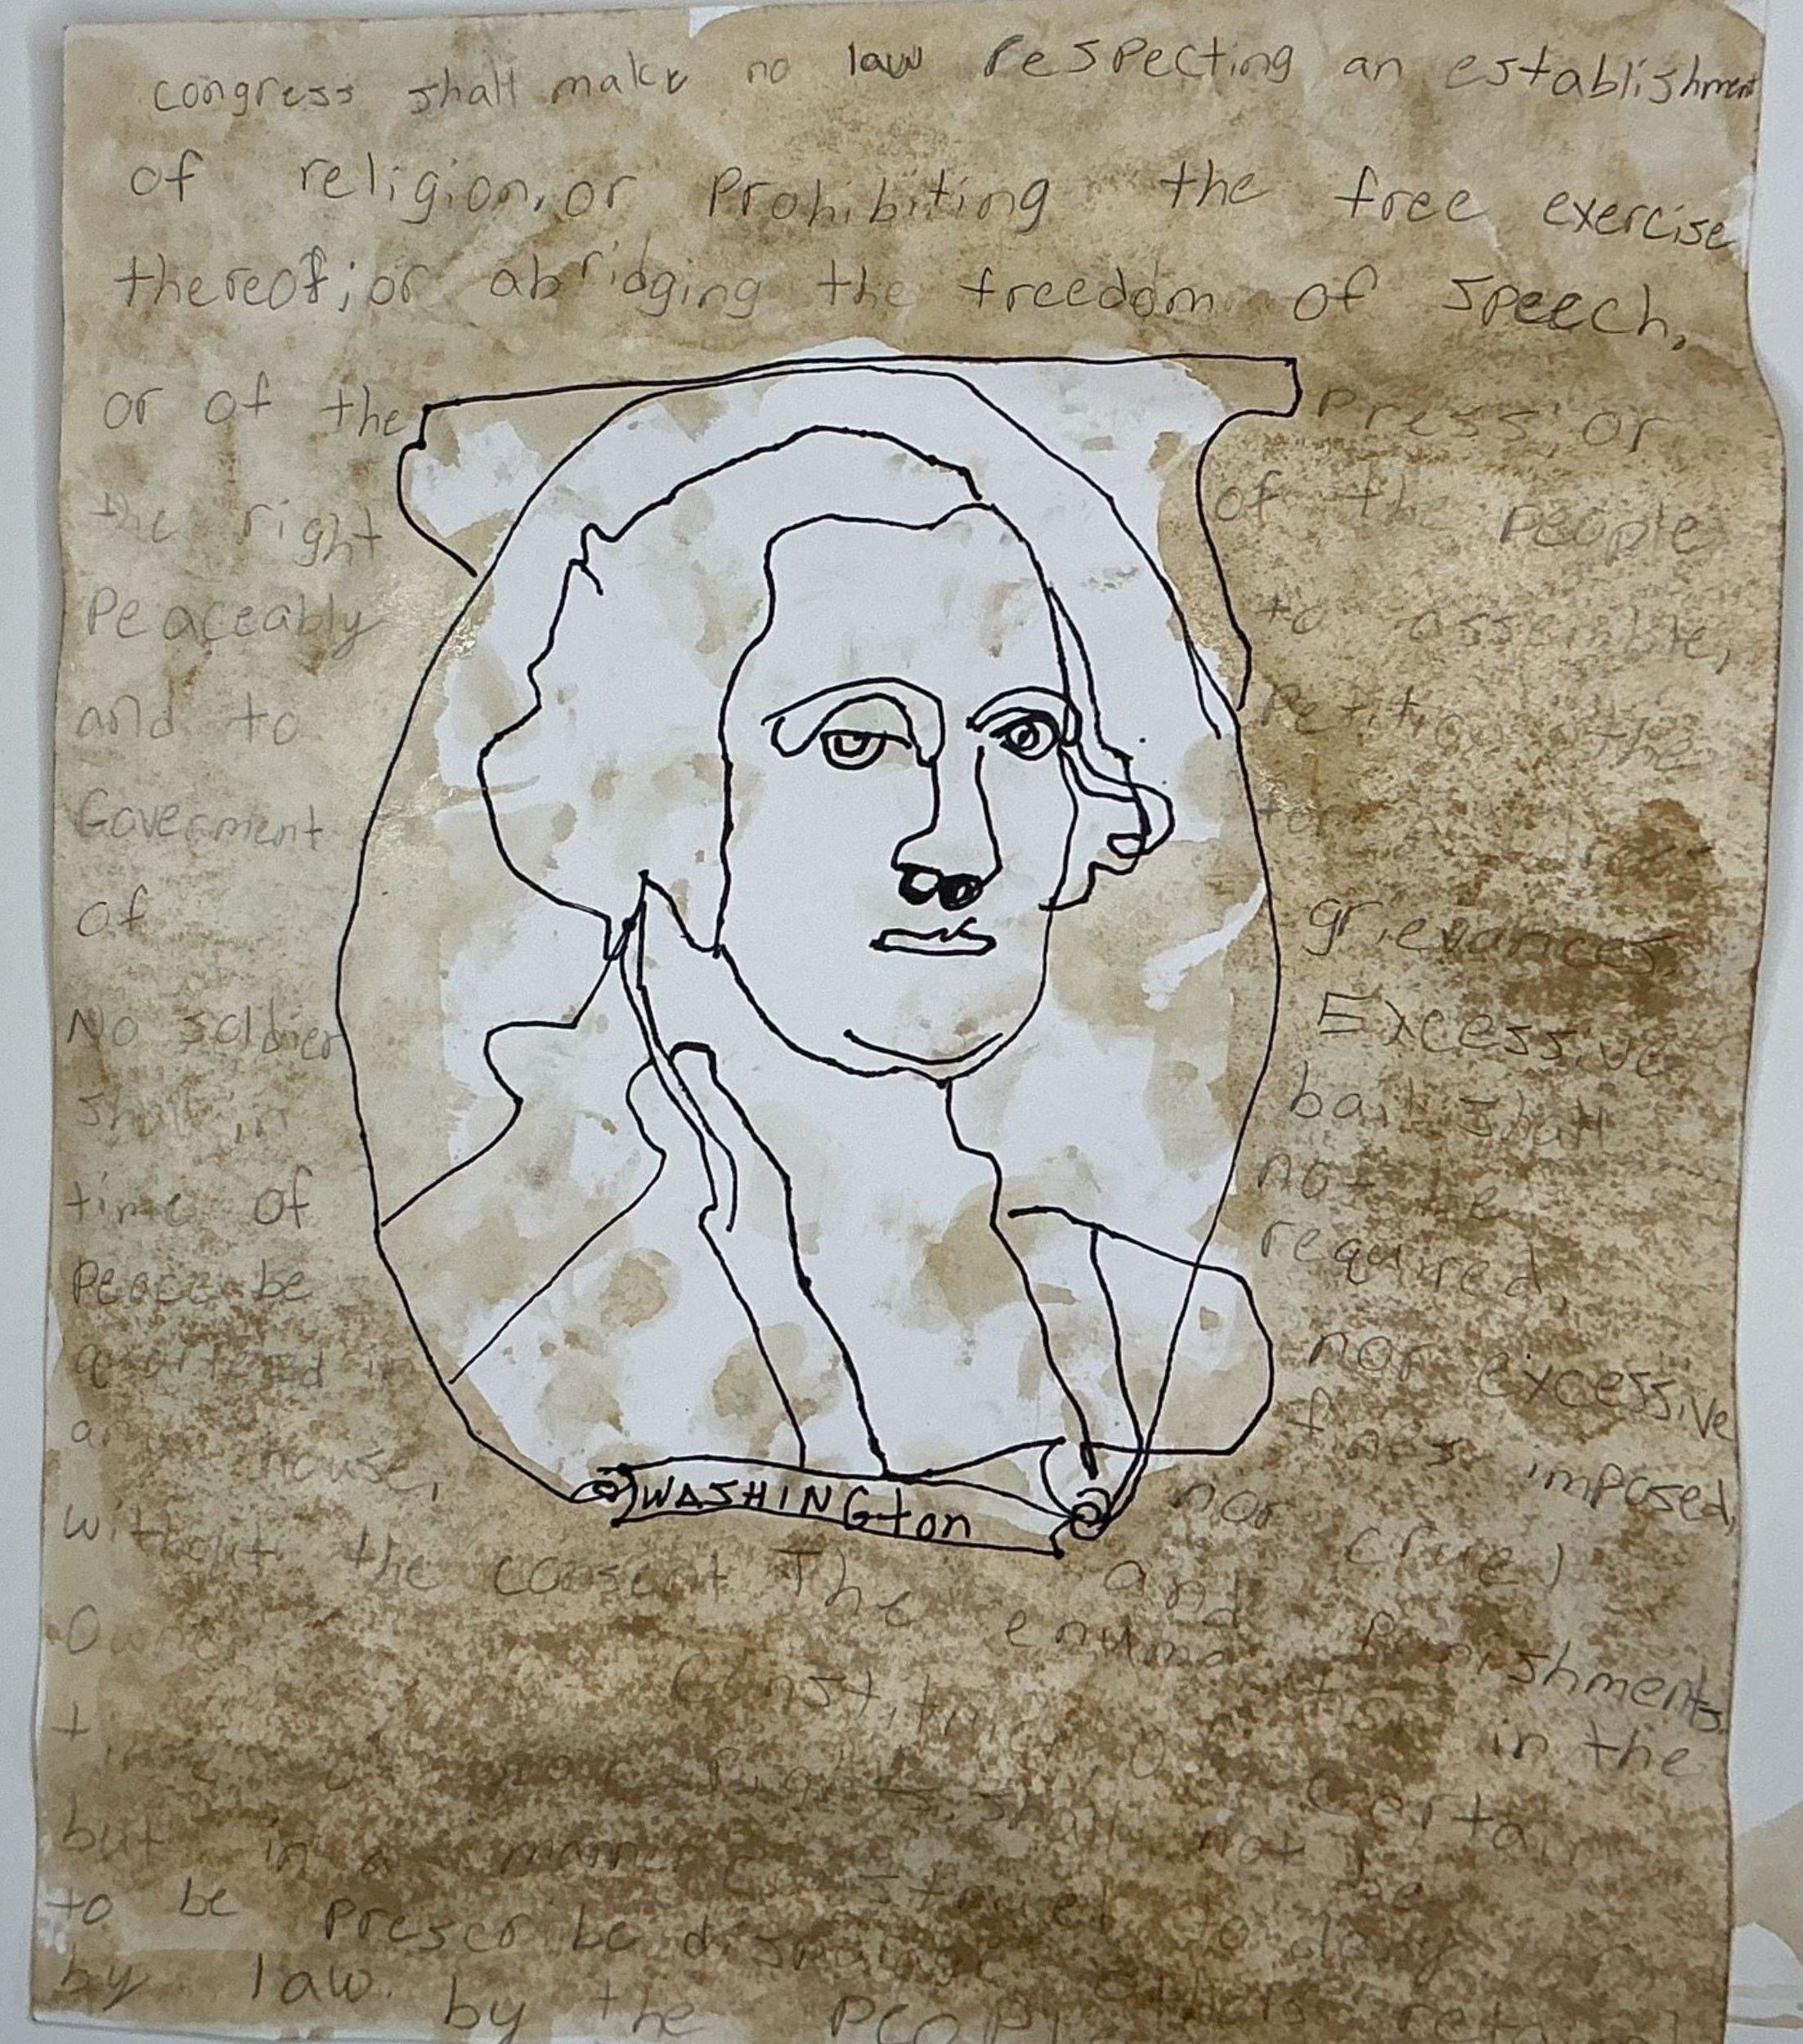 congress shall make no law respecting an establishment
of religion, or Prohibiting the free exercise
thereof; or abridging the freedom of speech,
or of the Press, or
the right of the people
Peaceably to assemble,
and to Petition the
Goverment
of grievances.
No soldier Excessive
shall in bail shall
time of not be
Peace be required,
quartered in nor excessive
any house, fines imposed,
WASHINGton
nor cruel
without the consent The and
enum Punishments
Constitution in the
time of war Rights, shall not be certain
but in a manner construed to deny or
to be Prescribed disparage others
by law. by the